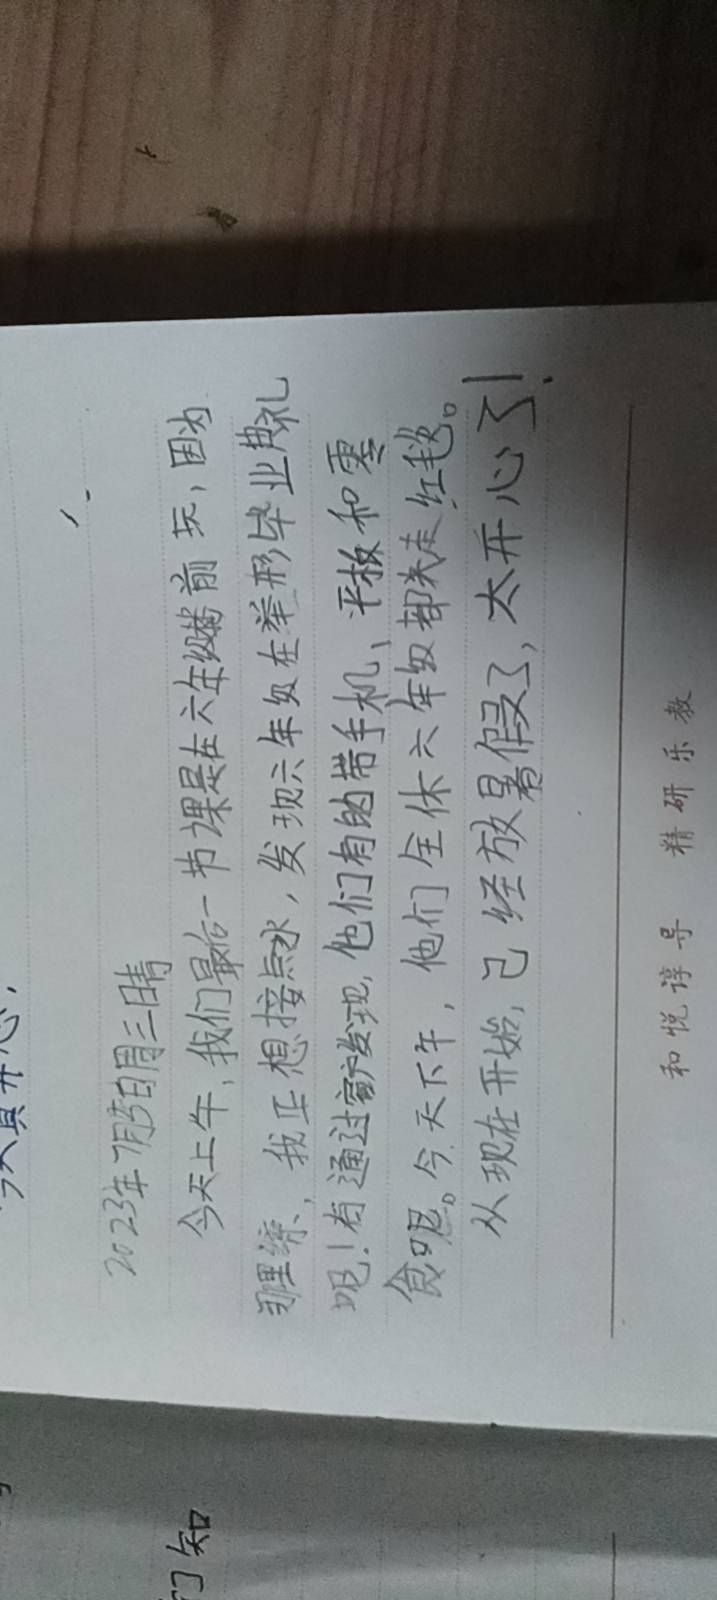 今天真开心，
2023年7月5日周三晴
今天上午，我们最后一节课是在六年级楼前玩，因为
那里凉、，我正想接点水，发现六年级在举形毕业典礼
呢！有通过窗户发现，他们有的带手机、平板和零
食呢。今天下午，他们全体六年级都先走红毯。
从现在开始，己经放暑假了，太开心了！
和悦谆导 精研乐教
们知